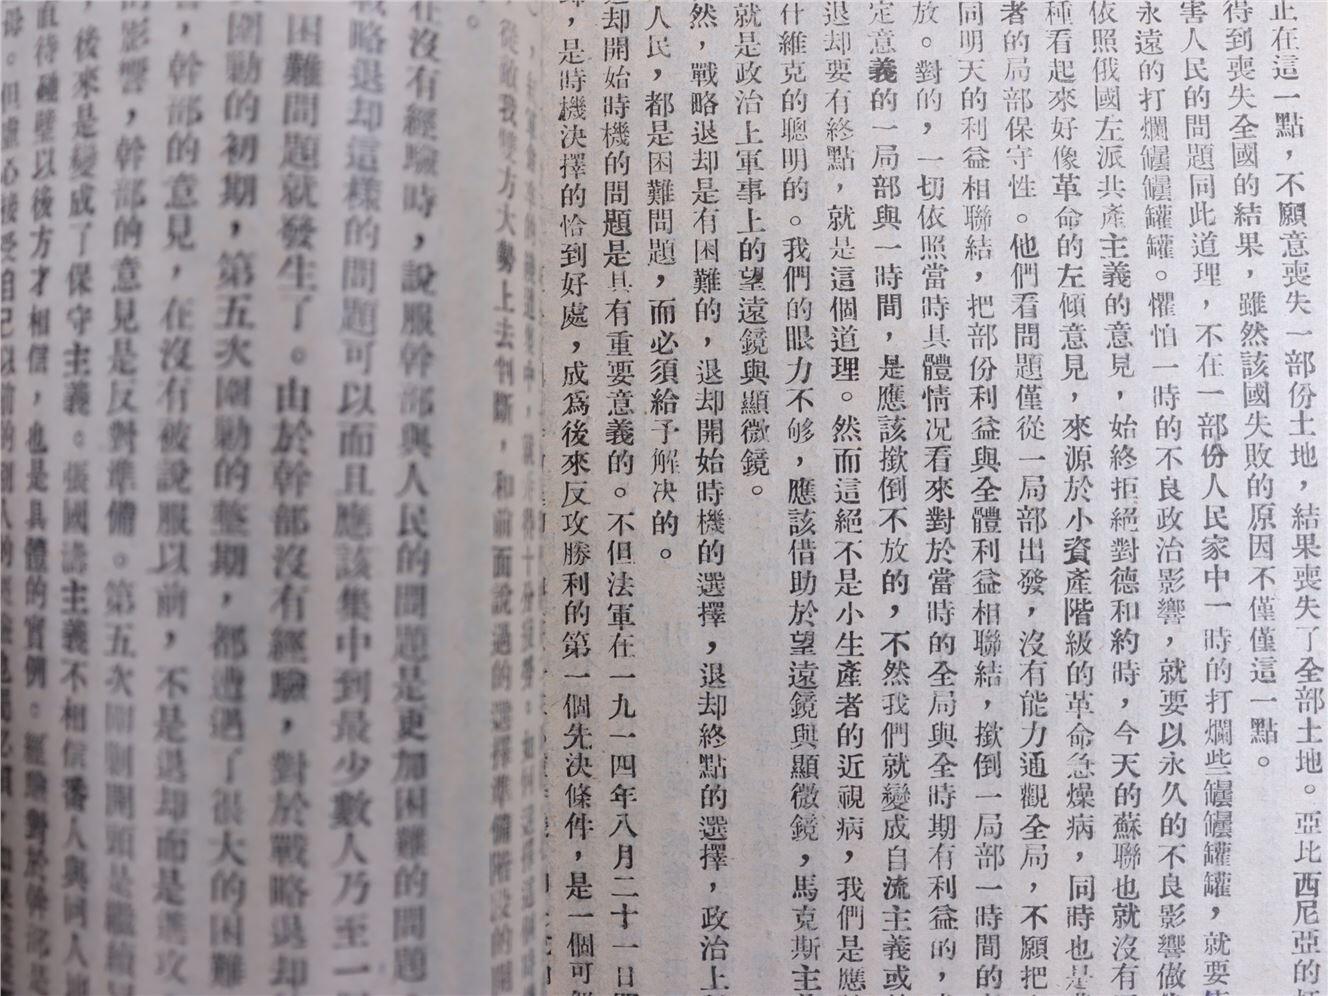 正在這一點，不願意喪失一部份土地，結果喪失了全部土地。亞比西尼亞的
得到喪失全國的結果，雖然該國失敗的原因不僅僅這一點。
害人民的問題同此道理，不在一部份人民家中一時的打爛些罎罎罐罐，就要
永遠的打爛罎罎罐罐。懼怕一時的不良政治影響，就要以永久的不良影響做
依照俄國左派共產主義的意見，始終拒絕對德和約時，今天的蘇聯也就沒有
種看起來好像革命的左傾意見，來源於小資產階級的革命急燥病，同時也是
者的局部保守性。他們看問題僅從一局部出發，沒有能力通觀全局，不願把
同明天的利益相聯結，把部份利益與全體利益相聯結，撳倒一局部一時間的
放。對的，一切依照當時具體情况看來對於當時的全局與全時期有利益的，
定意義的一局部與一時間，是應該撳倒不放的，不然我們就變成自流主義或
退却要有終點，就是這個道理。然而這絕不是小生產者的近視病，我們是應
什維克的聰明的。我們的眼力不够，應該借助於望遠鏡與顯微鏡，馬克斯主
就是政治上軍事上的望遠鏡與顯微鏡。
然，戰略退却是有困難的，退却開始時機的選擇，退却終點的選擇，政治上
人民，都是困難問題，而必須給予解决的。
却開始時機的問題是具有重要意義的。不但法軍在一九一四年八月二十一日
，是時機決擇的恰到好處，成爲後來反攻勝利的第一個先決條件，是一個可
從敵我雙方大勢上去判斷，和前面說過的選擇準備階段的
在沒有經驗時，說服幹部與人民的問題是更加困難的問題
戰略退却這樣的問題可以而且應該集中到最少數人乃至一
困難問題就發生了。由於幹部沒有經驗，對於戰略退却
圍勦的初期，第五次圍勦的整期，都遭遇了很大的困難
，幹部的意見，在沒有被說服以前，不是退却而是進攻
的影響，幹部的意見是反對準備。第五次圍勦開頭是
，後來是變成了保守主義。張國燾主義不相信番人與回人
直待碰壁以後方才相信，也是具體的實例。經驗對於幹部是